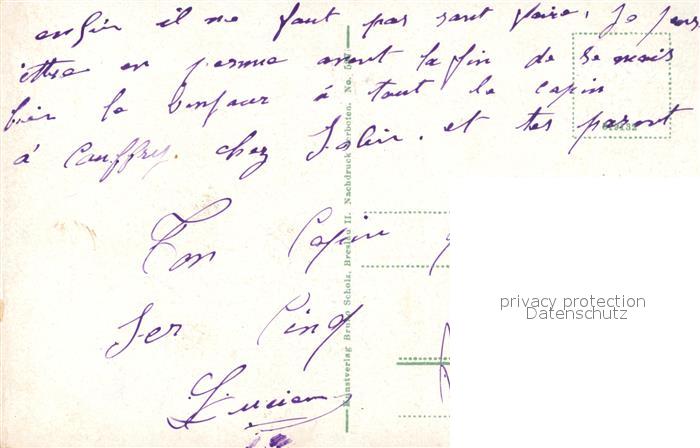 enfin il ne faut pas sant faire, je pens
ettre en permne avent la fin de se mois
bien le bonjour à tout le copin
à Couffry. chez Jolin. et tes parent
Ton Copin
Ser Cinq
Lucien
Kunstverlag Bruno Scholz, Breslau II. Nachdruck verboten. No.
privacy protection
Datenschutz